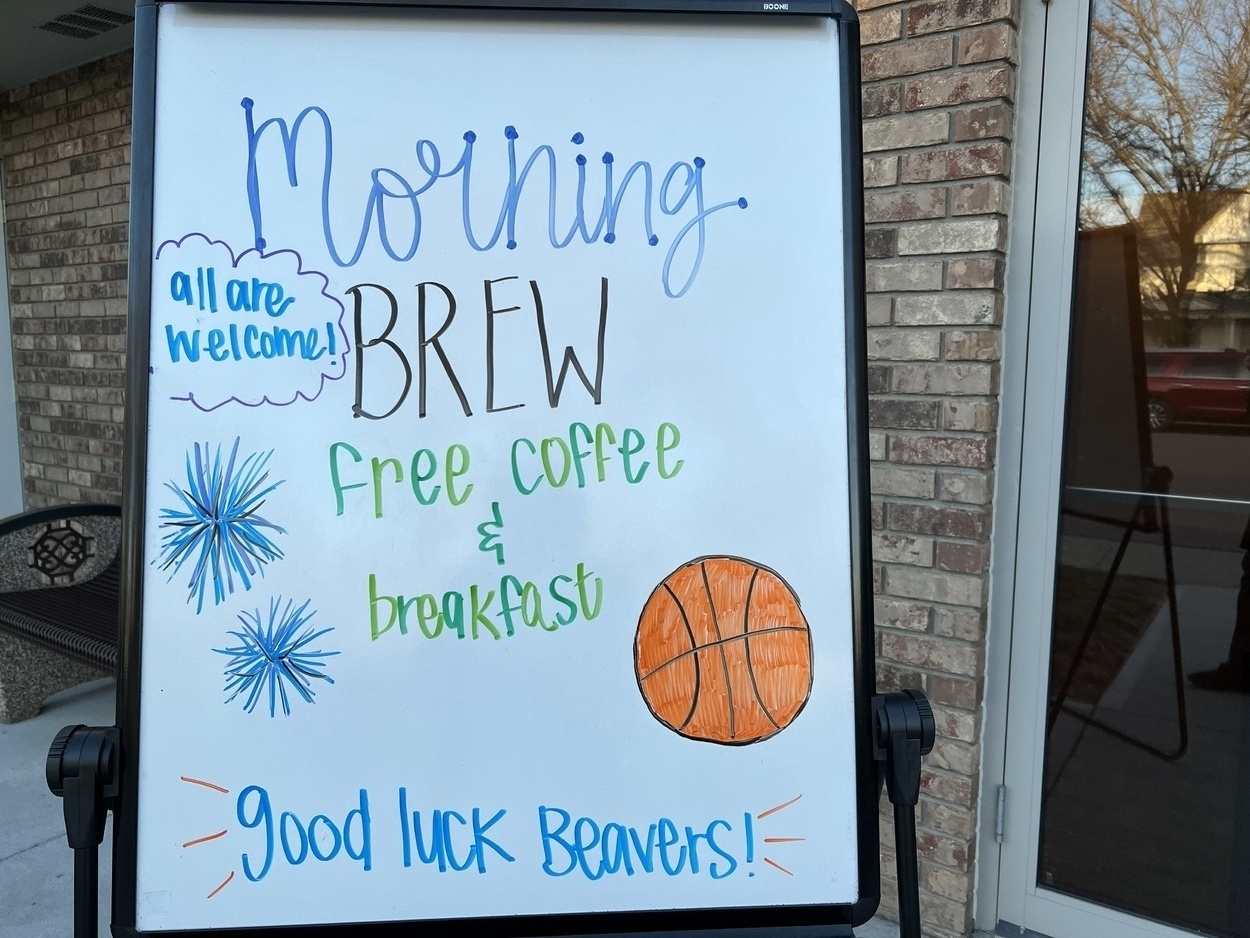 BOONE
Morning
all are
welcome!
BREW
free coffee
&
breakfast
good luck Beavers!